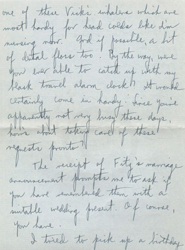 one of these Vicks inhalers which are
most handy for head colds like I'm
nursing now. And if possible, a bit
of dental floss too. By the way, were
you ever able to catch up with my
black travel alarm clock? It would
certainly come in handy. Since you're
apparently not very busy these days,
how about taking care of these
requests pronto?
The receipt of Fitz's marriage
announcement prompts me to ask if
you have enriched them with a
suitable wedding present. Of course,
you have.
I tried to pick up a birthday